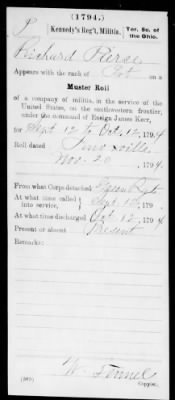 (1794.)
P
Kennedy's Reg't, Militia.
Ter. So. of the Ohio.
Richard Pierse
Appears with the rank of Pvt on a
Muster Roll
of a company of militia, in the service of the
United States, on the southwestern frontier,
under the command of Ensign James Kerr,
for Sept 12 to Oct. 12, 1794
Roll dated Knoxville,
Nov. 20, 1794.
From what Corps detached
At what time called into service, Sept 12, 179
At what time discharged Oct 12, 1794
Present or absent Present
Remarks:
W. Fennel
Copyist.